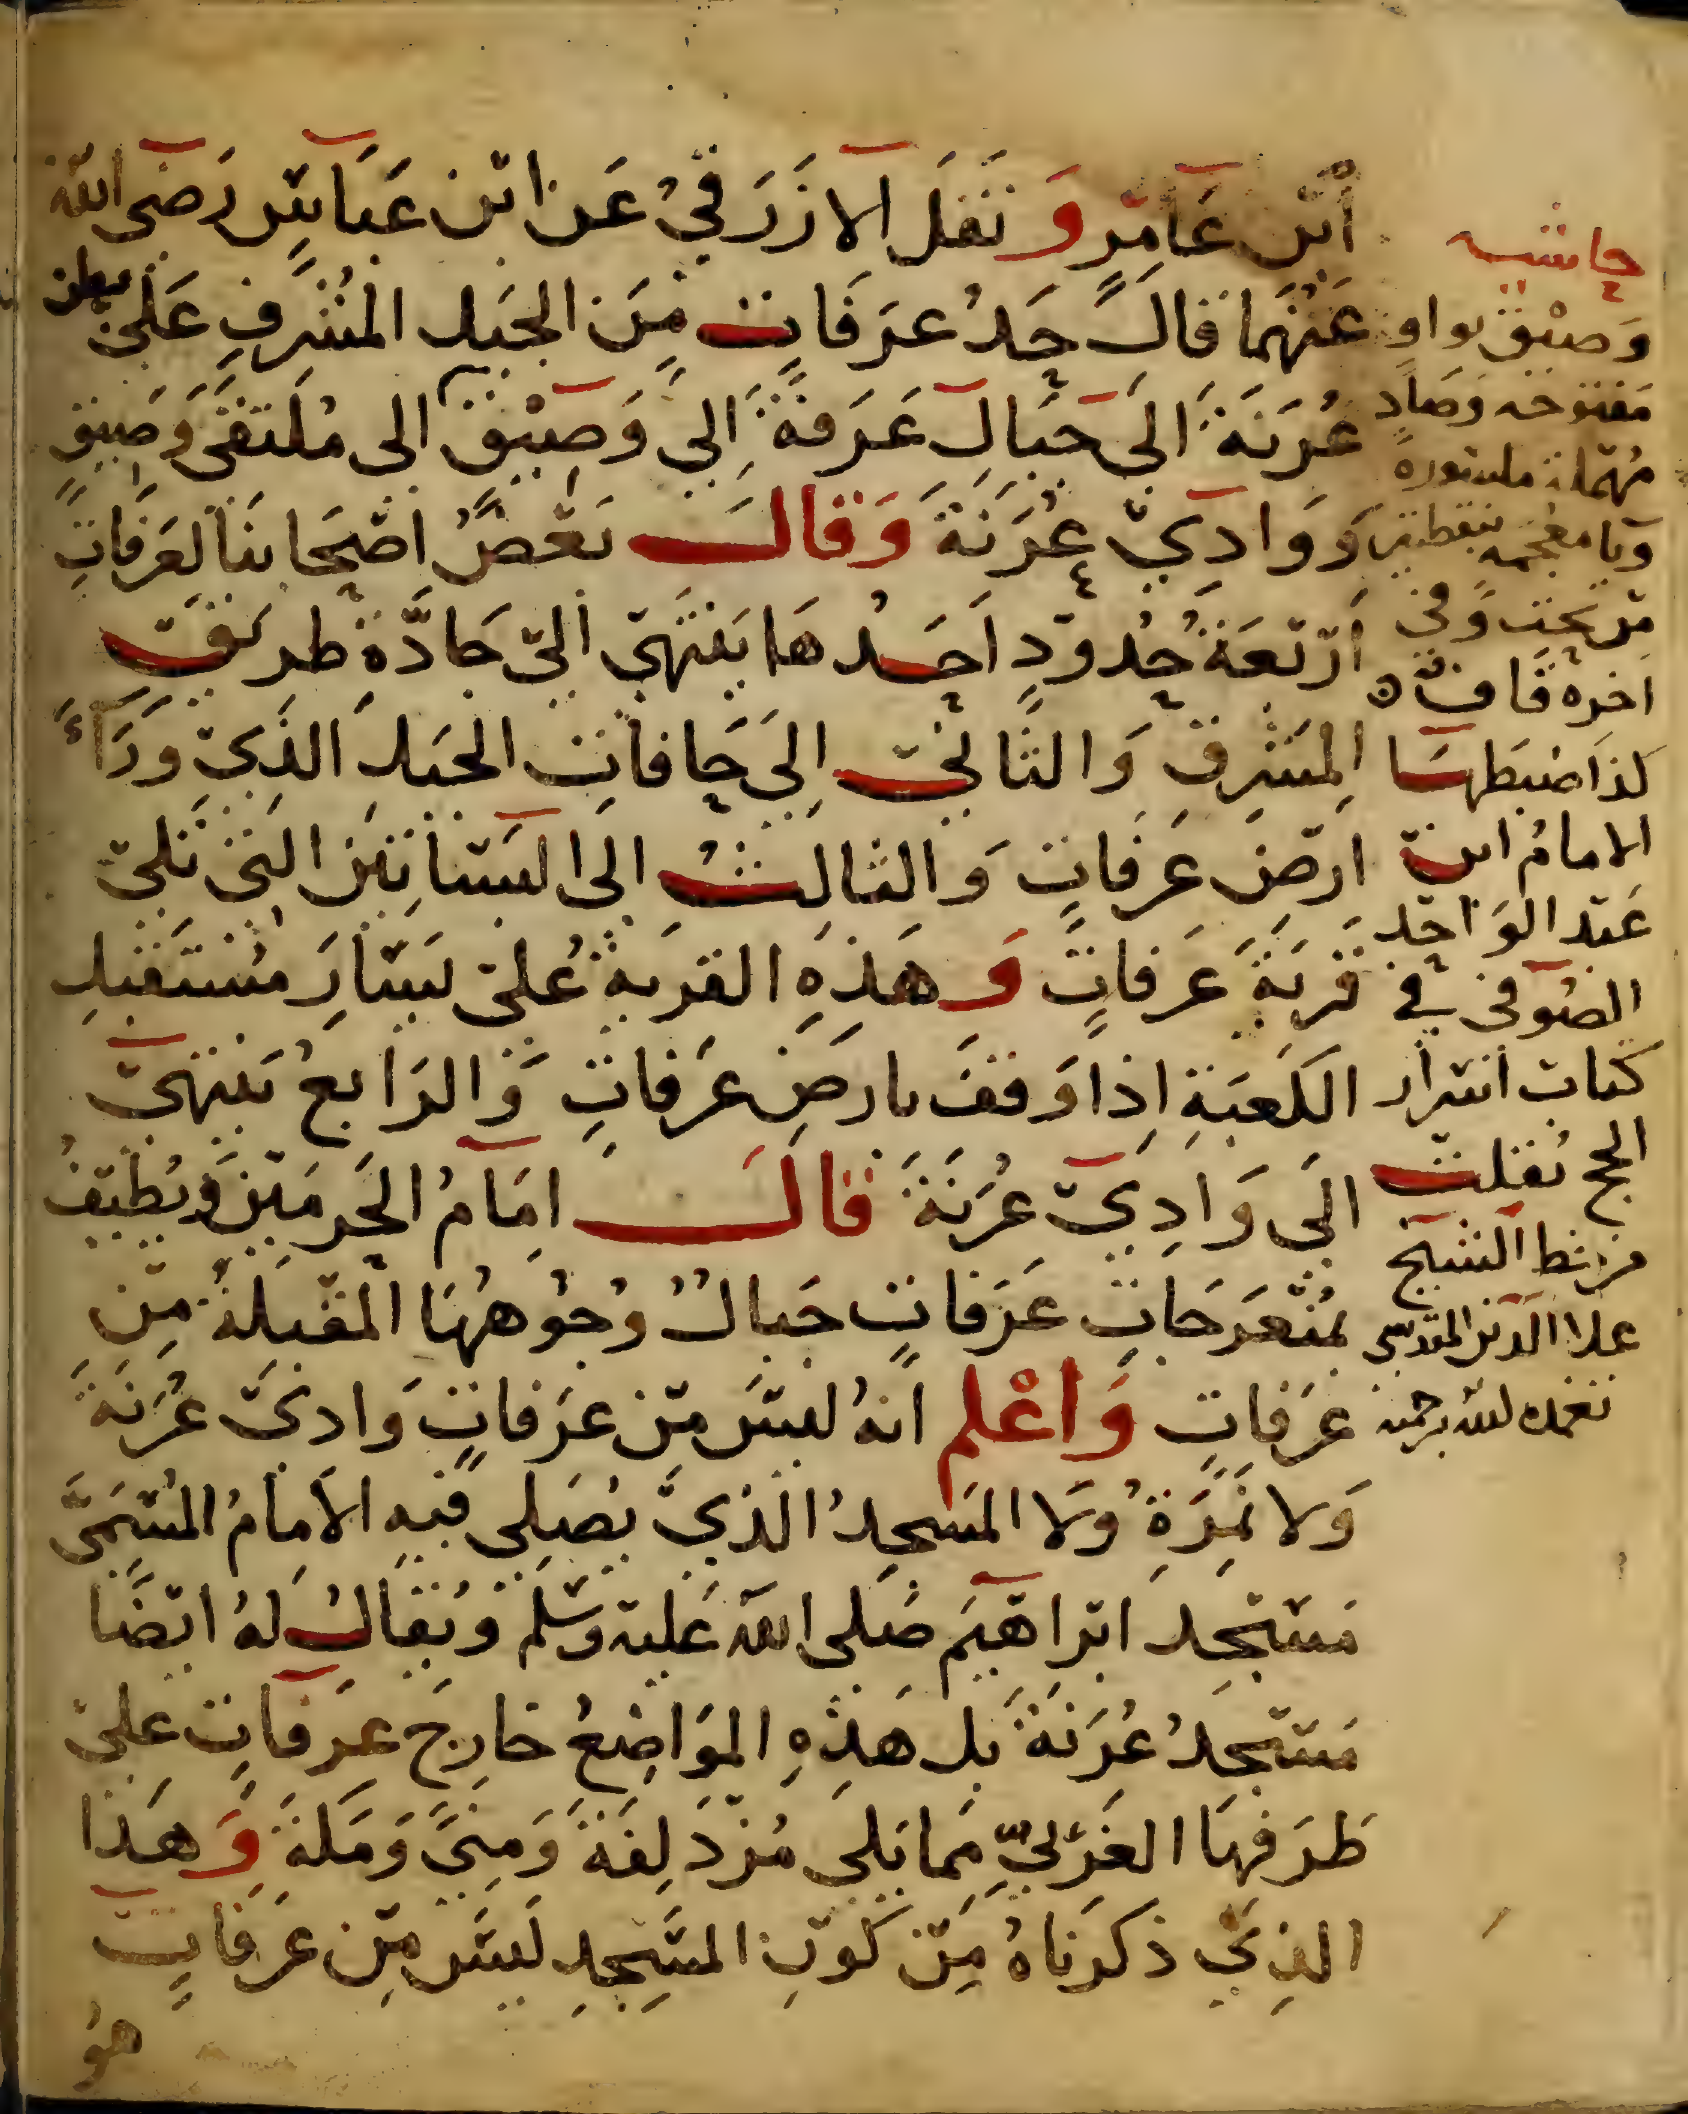 ابْن عَامِرٍ وَنَقَلَ الازرَقيُ عَن ابْن عَبَاسٍ رَضىَ الله
عَنْهُمَا قالَ حَدُ عرَفَاتٍ مِنَ الجَبَل المُشرِفِ عَلىَ بطن
عُرَنَةَ الىَ جبَالِ عَرَفَةَ الِى وَصِيْقٍ الى مُلتَقَى وَصِيقٍ
وَوَادِيْ عُرَنَةَ وَقالَ بَعْضُ اصْحَابنَا لعَرَفاتٍ
ارْبَعَةُ حُدُودٍ احَدُهَا يَنتَهىْ الىْ جَادَّةِ طريقْ
المَشرِقِ وَالثَانىْ الىَ حَافاتِ الجَبَل الذِىْ ورَآءَ
ارْضِ عَرَفاتٍ وَالثالثُ الى البَسَاتِيْنَ التى تَلىْ
قَريَةَ عَرَفاتٍ وَهَذِهِ القريَة عُلىْ يَسَارِ مُستَقبل
الكَعبَةِ اذِا وَقفَ بارضِ عَرَفاتٍ وَالرَابعُ يَنتهىْ
الىَ وَادِىْ عُرَنَةَ قالَ امَامُ الحَرمَيْن وَيُطيْفُ
بمُنْعَرَجَاتِ عَرَفاتٍ جبَالُ وُجُوهُهَا المقْبلةُ مِن
عَرَفاتٍ وَاعْلم انهُ ليسَ مِن عرَفاتٍ وَادىْ عُرَنَةَ
وَلا نَمِرَةِ وَلا المسَجدُ الذىْ يصَلى فيهِ الاَمامُ المُسَمَىَّ
مَسْجِد ابْراهَيمَ صَلى الله عَليه وسَلم ويُقالُ لهُ ايْضًا
مَسْجِدُ عُرَنةَ بل هَذِهِ الموَاضِعُ خارِجَ عرَفاتٍ علىْ
طَرَفهَا الغَرْبىِّ مما يَلى مُزْدَلِفَةَ وَمِنىً وَمَكةَ وَهَذا
الذِىْ ذكرنَاهُ مِنْ كَوْنِ المسْجِدِ ليسَ مِن عَرَفاتٍ
هُوَ
حاشيه
وَصِيْق بواوٍ
مَفتوحه وَصادٍ
مُهمَلة مكسُورةً
وَيا معْجمه بنقطتين
مِن تحت وَفى
اخره قاف ه
كذا ضبَطهَا
الامامُ ابن
عَبْد الوَاحْد
الصُوْفى في
كتاب اسْرار
الحج نقلت
من خط الشيخ
علا الدين المقدسى
تغمده الله برحمته